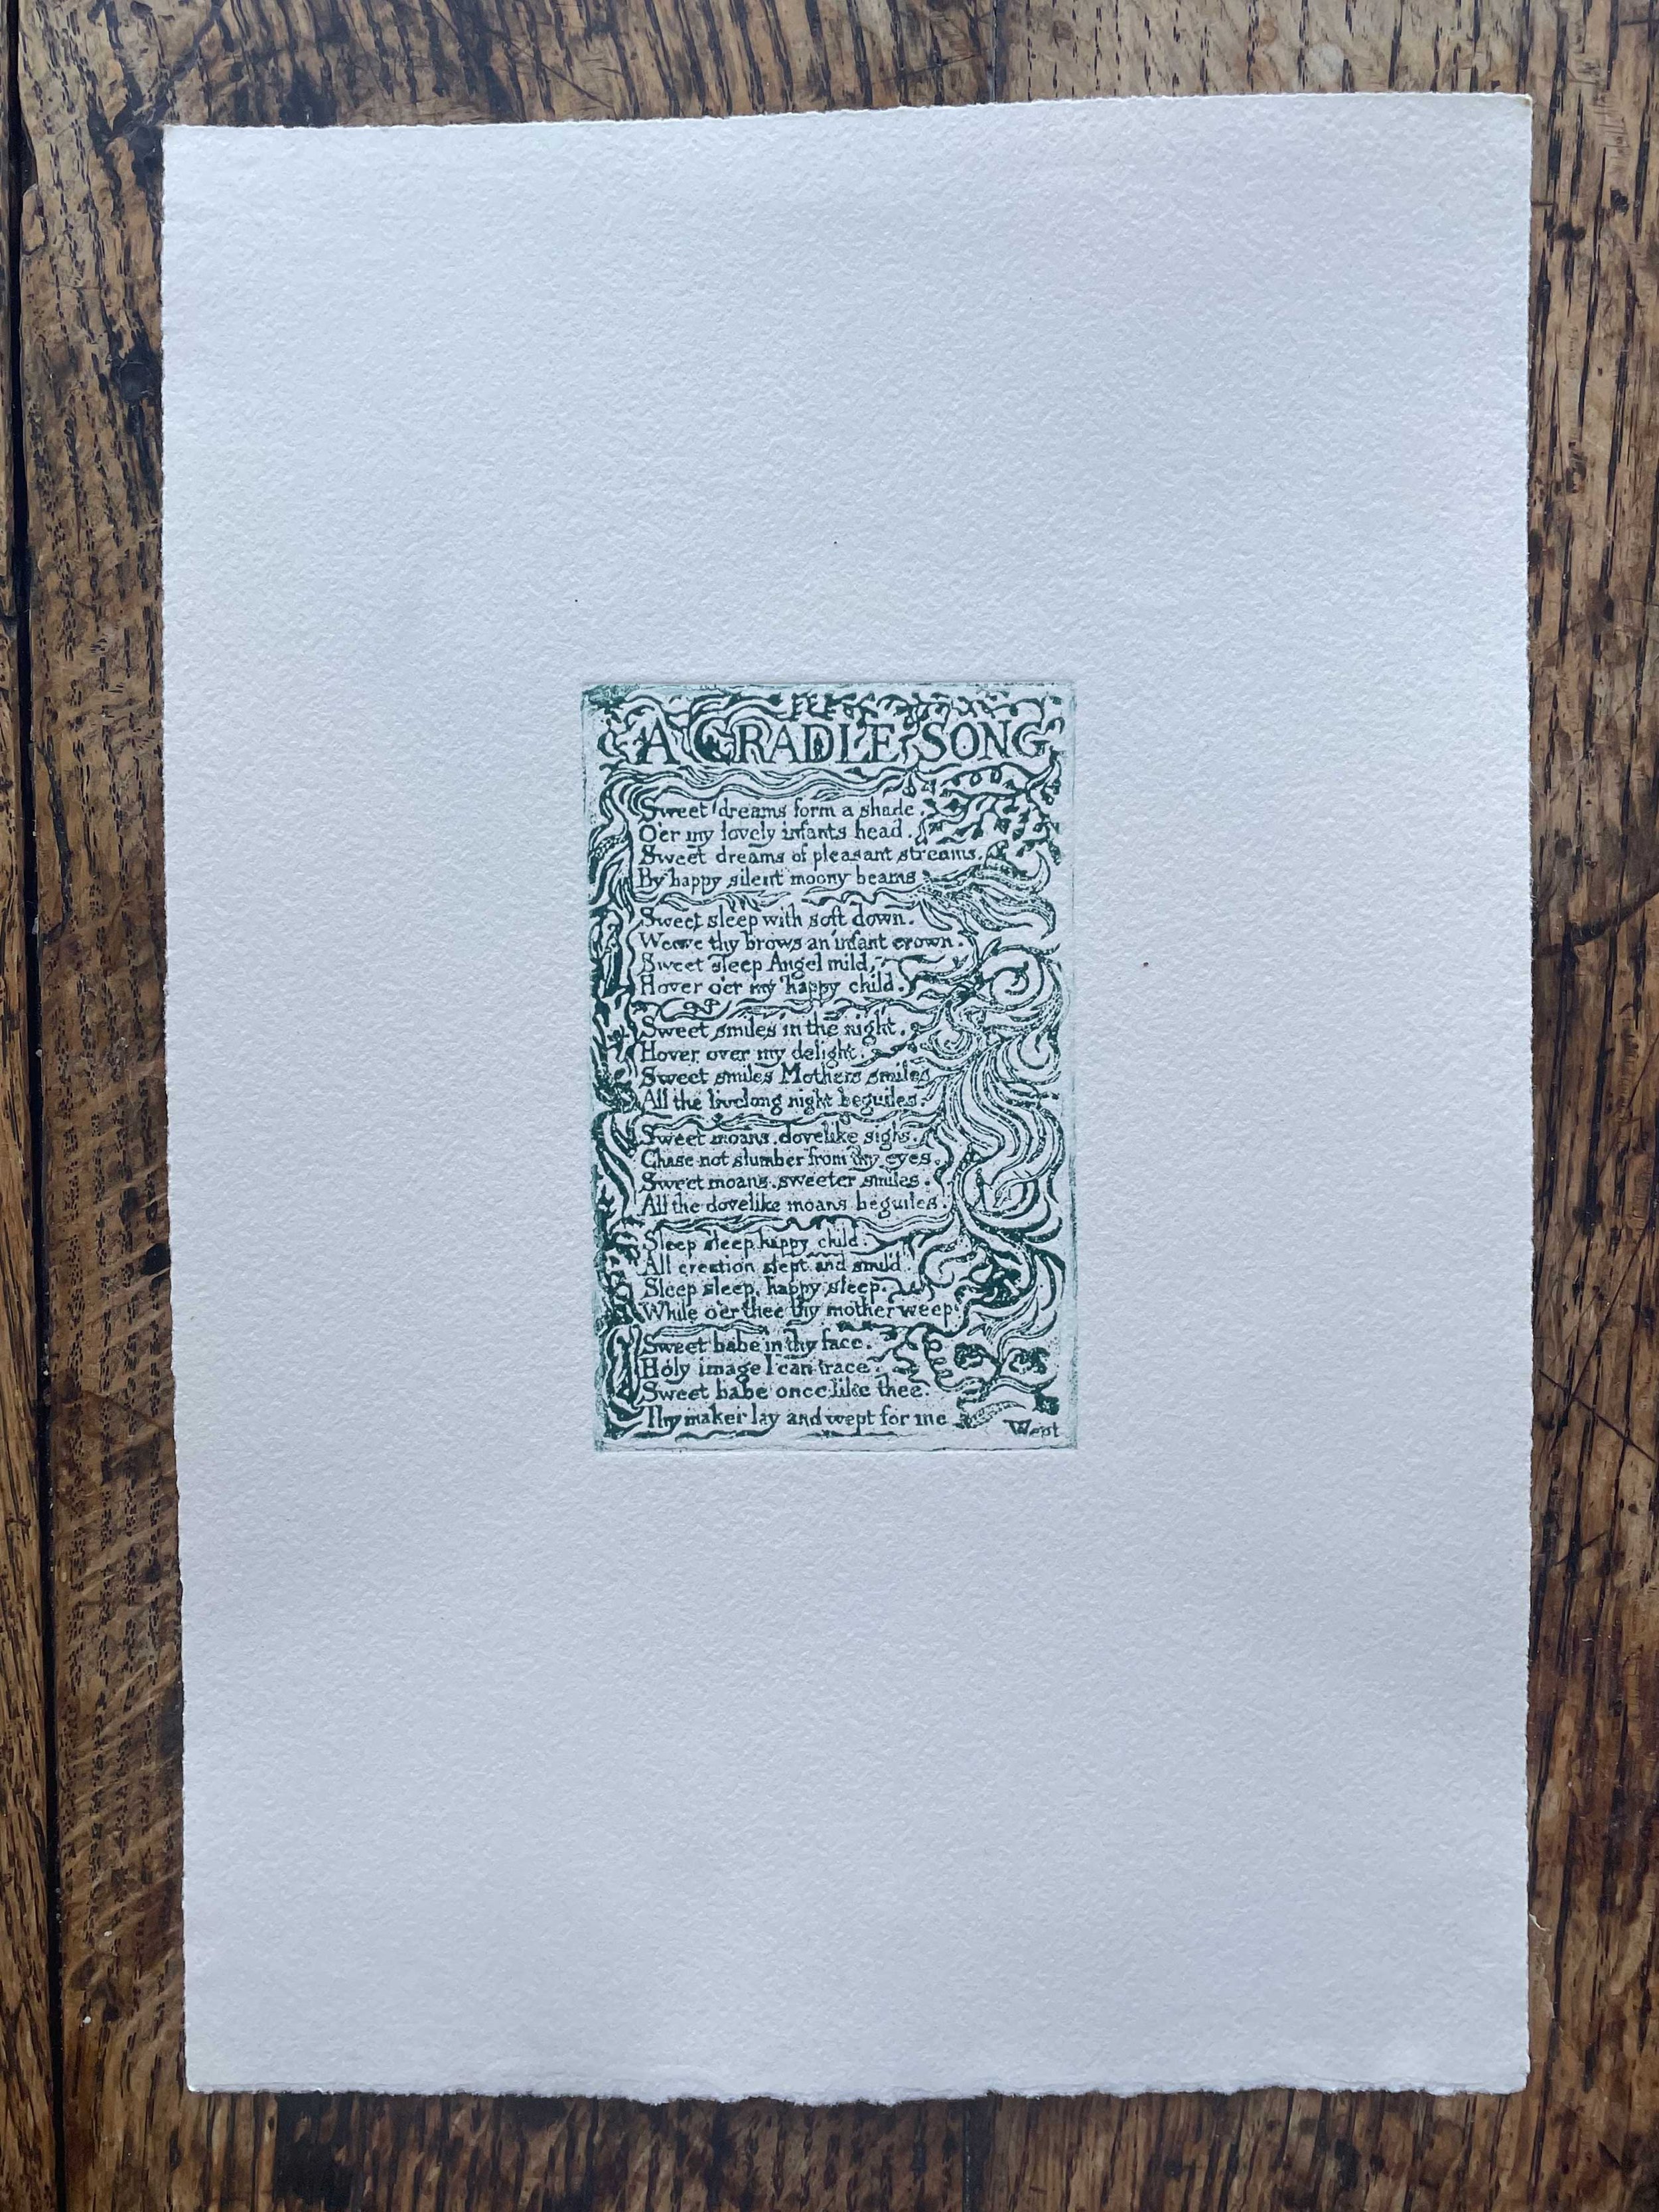 A CRADLE SONG
Sweet dreams form a shade.
O'er my lovely infants head.
Sweet dreams of pleasant streams.
By happy silent moony beams
Sweet sleep with soft down.
Weave thy brows an infant crown.
Sweet sleep Angel mild,
Hover o'er my happy child.
Sweet smiles in the night.
Hover over my delight.
Sweet smiles Mothers smiles
All the livelong night beguiles.
Sweet moans. dovelike sighs.
Chase not slumber from thy eyes.
Sweet moans. sweeter smiles.
All the dovelike moans beguiles.
Sleep sleep happy child.
All creation slept and smil'd.
Sleep sleep, happy sleep.
While o'er thee thy mother weep
Sweet babe in thy face.
Holy image I can trace.
Sweet babe once like thee.
Thy maker lay and wept for me
Wept